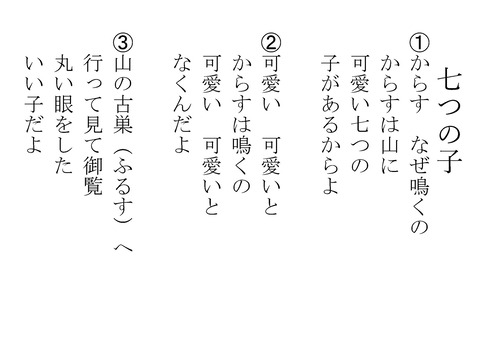 七つの子
①からす　なぜ鳴くの
からすは山に
可愛い七つの
子があるからよ
②可愛い　可愛いと
からすは鳴くの
可愛い　可愛いと
なくんだよ
③山の古巣（ふるす）へ
行って見て御覧
丸い眼をした
いい子だよ